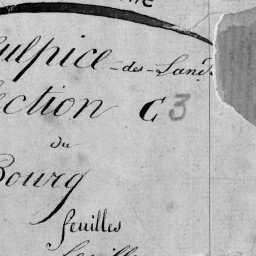 ulpice-des-Land
ection C3
du
Bourg
feuilles